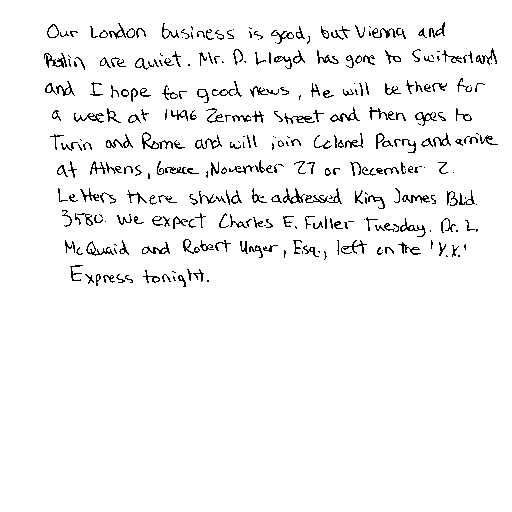 Our London business is good, but Vienna and
Berlin are quiet. Mr. D. Lloyd has gone to Switzerland
and I hope for good news, He will be there for
a week at 1496 Zermott Street and then goes to
Turin and Rome and will join Colonel Parry and arrive
at Athens, Greece, November 27 or December 2.
Letters there should be addressed King James Blvd.
3580. We expect Charles E. Fuller Tuesday. Dr. L.
McQuaid and Robert Unger, Esq., left on the 'Y.X.'
Express tonight.